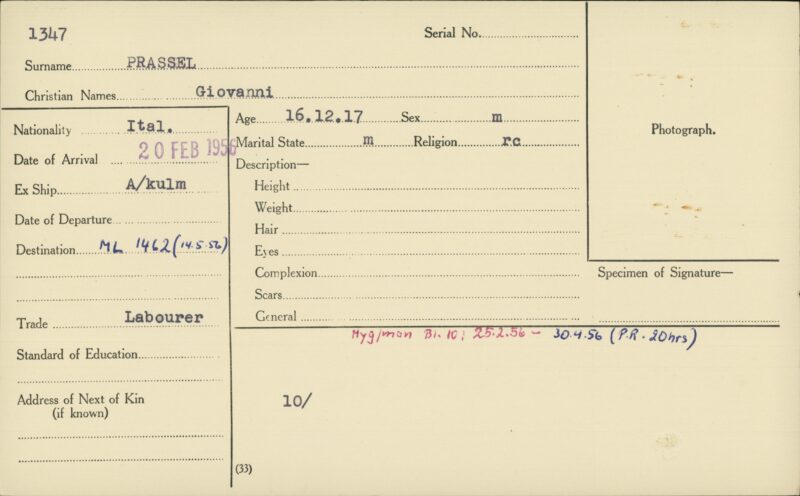 1347
Serial No.
Surname PRASSEL
Christian Names Giovanni
Nationality Ital.
Date of Arrival 20 FEB 1956
Ex Ship A/kulm
Date of Departure
Destination ML 1462 (14.5.56)
Trade Labourer
Standard of Education
Address of Next of Kin
(if known)
Age 16.12.17 Sex m
Marital State m Religion rc
Description—
Height
Weight
Hair
Eyes
Complexion
Scars
General
Photograph.
Specimen of Signature—
Hyg/man Bl. 10; 25.2.56 - 30.4.56 (P.R. - 20hrs)
10/
(33)